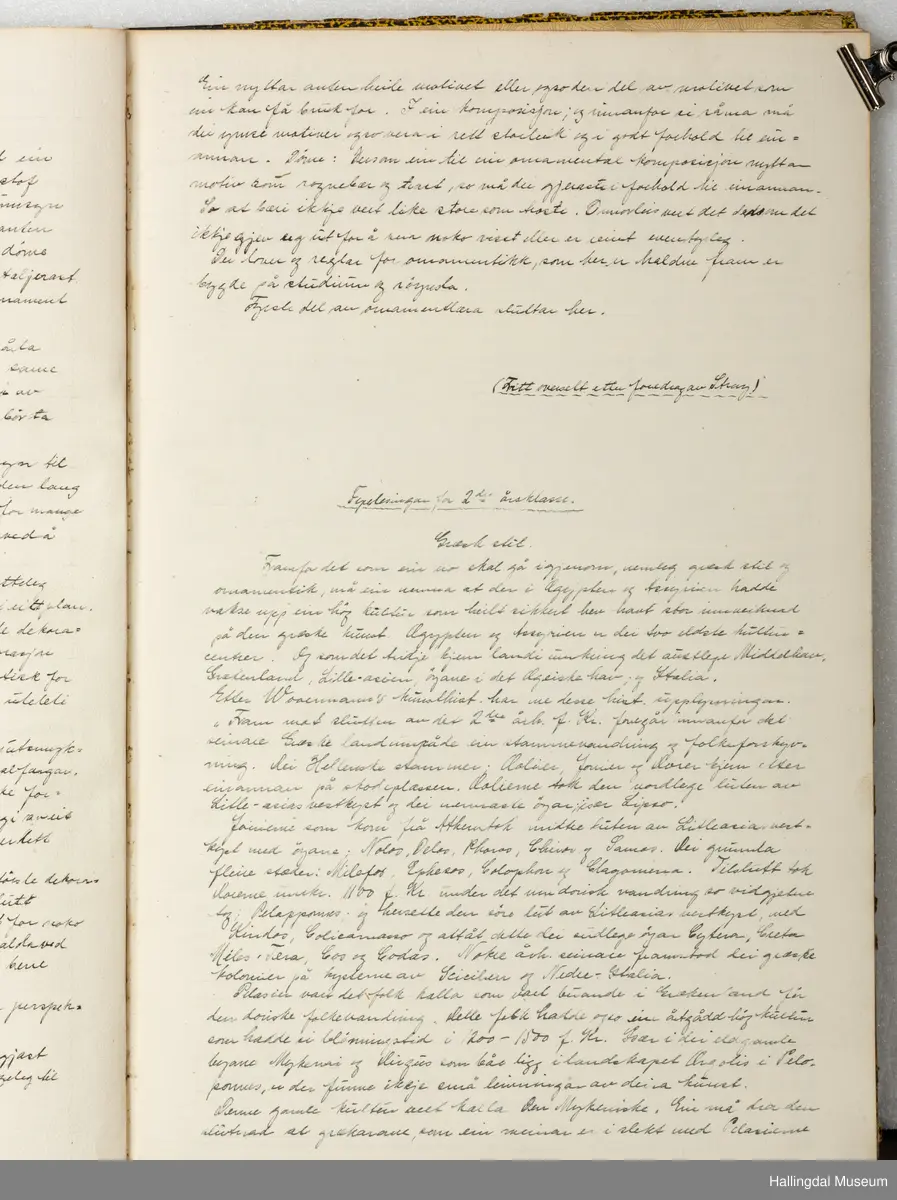 t ein
stof
anten
döme
etaljerast
nament
åsta
same
i av
bör ta
syn til
den lang
for mange
ved å
tteleg
i eitt plan.
le dekora=
rasjon
tikk for
uteleti
utsmyk=
al fargar.
ke for=
g i a veit
erdett
förste dekora=
lutt
t for noko
alda ved
bene
perspek=
gjast
geleg til
Ein nyttar anten heile motivet eller ogso den del av motivet som
ein kan få bruk for. I ein komposisjon; og innanfor si råma må
dei ymse motiver ogso vera i rett storleik og i godt forhold til ein=
annan. Döme: Dersom ein til ein ornamental komposisjon nyttar
motiv som rognebær og kvist, so må dei gjerast i forhold til einannan.
So at bæri ikkje vert like store som . vert det dersom det
ikkje gjev seg ut for å vera noko visst eller er reint eventyrleg.
Dei lover og reglar for ornamentikk, som her er heldne fram er
bygde på studium og röynsla.
Fyrste del av ornamentlæra sluttar her.
(Fritt oversett etter foredrag av Strøy)
Fyrelesningar for 2dre årsklasse.
Græsk stil.
Framfor det som ein no skal gå igjenom, nemleg græsk stil og
ornamentik, må ein nemna at der i Ægypten og Assyrien hadde
vakse upp ein høg kultur som heilt sikkert hev havt stor innverknad
på den græske kunst. Ægypten og Assyrien er dei tvo eldste kultur=
center. Og som det tridje kjem landi umkring det austlege Middelhav,
Grækenland, Lille-asien, øyane i det Ægeiske hav, og Italia.
Etter Woermanns kunsthist. har me desse hist. upplysningar.
"Fram mot slutten av det 2dre årh. f. Kr. foregår innanfor det
seinare Græske landområde ein stammevandring og folkeforskyv-
ning. Dei Hellenske stammer: Æolier, Jonier og Dorer kjem etter
einannan på stodeplassen. Æolierne tok den nordlege luten av
Lille-asias vestkyst og dei nærmaste øyar
Jonierne som kom frå Athen tok midtre luten av Litleasias vest-
kyst med øyane: Nolos, Delos, Pharos, Chios og Samos. Dei grunnla
fleire stæder: Milefos, Ephesos, Colophon og Clagomena. Tilslutt tok
dorierne umkr. 1100 f. Kr. under det um dorisk vandring so vidgjetne
tog; Pelappones. og hersette den søre lut av Litleasias vestkyst, med
Knidos, Golicarnasso og attåt dette dei sudlege øyar Cytera, Creta
Milos, Tera, Cos og Rodas. Nokre årh. seinare framstod dei græske
kolonier på kysterne av Scicilien og Nedre-Italia.
Pelasier vart det folk kalla som vart buande i Grækenland før
den doriske folkevandring. Dette folk hadde ogso ein åtgådd høg kultur
som hadde si blömingstid i 1200-1500 f. Kr. Svar i dei eldgamle
byane Mykenai og Tiryns som båe ligg i landskapet Argolis i Pelo-
ponnes, er der funne ikkje små leivningar av deira kunst.
Denne gamle kultur vert kalla Den Mykeniske. Ein må dra den
slutnad at grækarane, som ein meinar er i slekt med Pelasierne
Hallingdal Museum